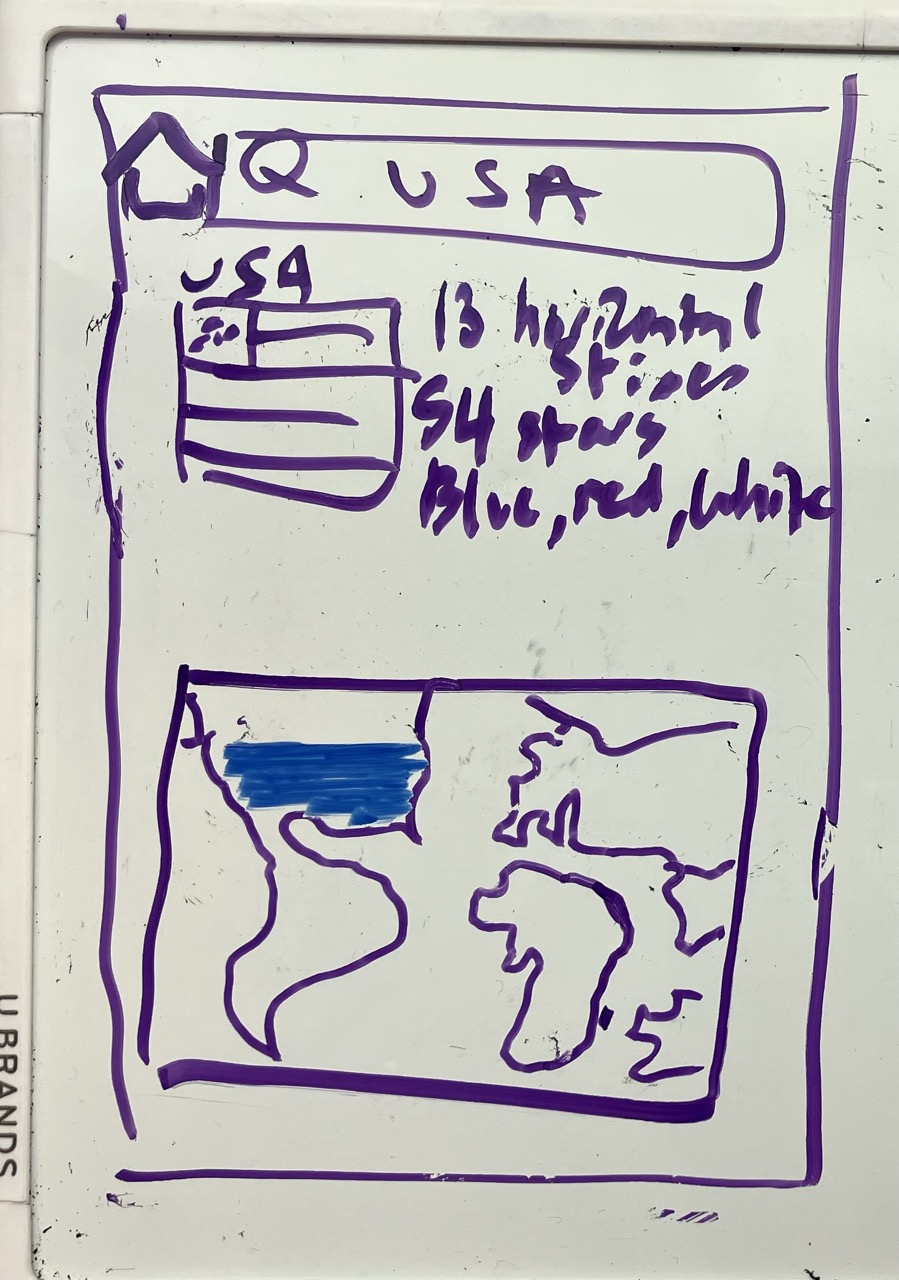 USA
USA
13 horizontal
stripes
54 stars
Blue, red, white
U BRANDS